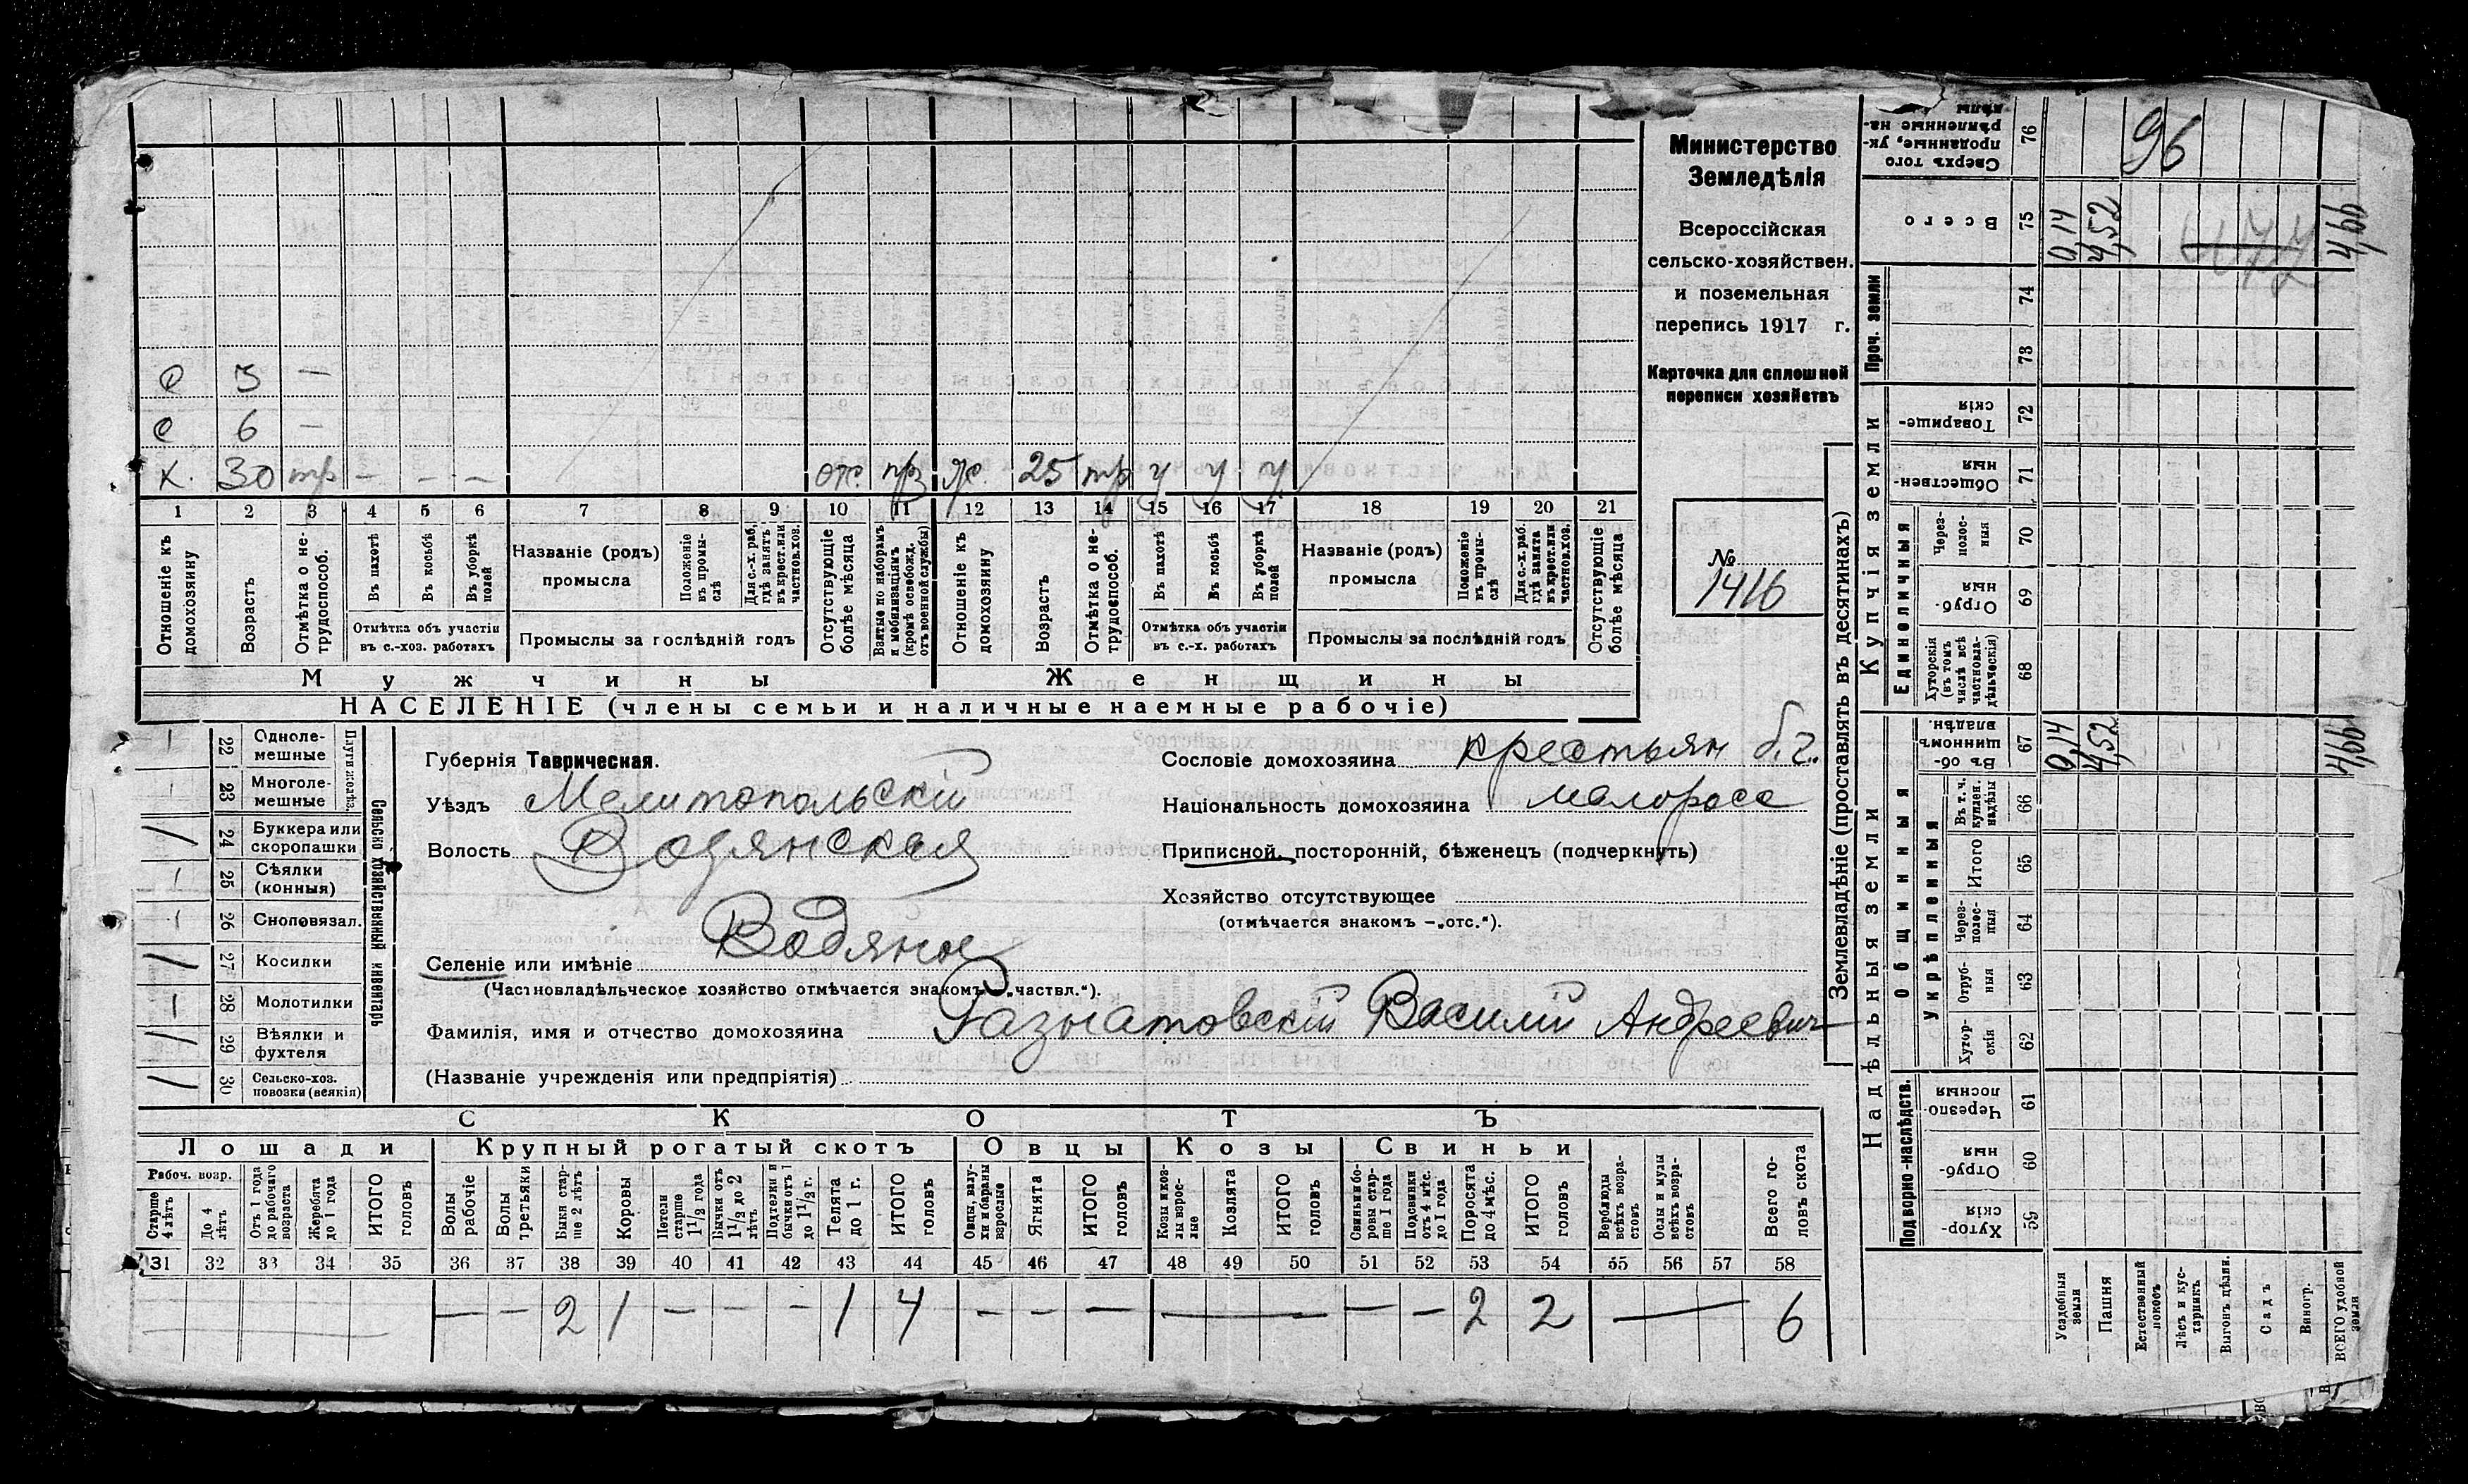 Министерство
Земледѣлія
Всероссійская
сельско-хозяйствен.
и поземельная
перепись 1917 г.
Карточка для сплошной
переписи хозяйствъ
№
1416
С 3 —
С 6 —
Х. 30 тр — — — отс. прз ж. 25 тр у у у
1 2 3 4 5 6 7 8 9 10 11 12 13 14 15 16 17 18 19 20 21
Отношеніе къ домохозяину
Возрастъ
Отмѣтка о не-трудоспособ.
Въ пахотѣ
Въ косьбѣ
Въ уборкѣ полей
Отмѣтка объ участіи
въ с.-хоз. работахъ
Названіе (родъ)
промысла
Положеніе въ промы-слѣ
Для с.-х. раб. гдѣ занятъ въ крест. или частнов. хоз.
Промыслы за послѣдній годъ
Отсутствующіе болѣе мѣсяца
Взятые по наборамъ и мобилизаціямъ (кромѣ освобожд. отъ военной службы)
Отношеніе къ домохозяину
Возрастъ
Отмѣтка о не-трудоспособ.
Въ пахотѣ
Въ косьбѣ
Въ уборкѣ полей
Отмѣтка объ участіи
въ с.-х. работахъ
Названіе (родъ)
промысла
Положеніе въ промы-слѣ
Для с.-х. раб. гдѣ занята въ крест. или частнов. хоз.
Промыслы за послѣдній годъ
Отсутствующіе болѣе мѣсяца
Мужчины Женщины
НАСЕЛЕНІЕ (члены семьи и наличные наемные рабочіе)
Сельско хозяйственный инвентарь
22 Однолемешные
23 Многолемешные
24 Буккера или скоропашки
25 Сѣялки (конныя)
26 Сноповязал.
27 Косилки
28 Молотилки
29 Вѣялки и фухтеля
30 Сельско-хоз. повозки (всякія)
Губернія Таврическая.
Уѣздъ Мелитопольскій
Волость Водянская
Селеніе или имѣніе Водяное
(Частновладѣльческое хозяйство отмѣчается знакомъ „частвл.“).
Фамилія, имя и отчество домохозяина Василій Андреевич
(Названіе учрежденія или предпріятія)
Сословіе домохозяина крестьян
Національность домохозяина малоросс
Приписной, посторонній, бѣженецъ (подчеркнуть)
Хозяйство отсутствующее
(отмѣчается знакомъ —„отс.“).
СКОТЪ
Лошади Крупный рогатый скотъ Овцы Козы Свиньи
Рабоч. возр.
Старше 4 лѣтъ
До 4 лѣтъ
Отъ 1 года до рабочаго возраста
Жеребята до 1 года
ИТОГО головъ
Волы рабочіе
Волы третьяки
Быки стар-ше 2 лѣтъ
Коровы
Нетели старше 1 1/2 года
Бычки отъ 1 1/2 до 2 лѣтъ
Подтелки и бычки отъ 1 до 1 1/2 г.
Телята до 1 г.
ИТОГО головъ
Овцы, валу-хи и бараны взрослые
Ягнята
ИТОГО головъ
Козы и коз-лы взрос-лые
Козлята
ИТОГО головъ
Свиньи и бо-ровы стар-ше 1 года
Подсвинки отъ 4 мѣс. до 1 года
Поросята до 4 мѣс.
ИТОГО головъ
Верблюды всѣхъ возра-стовъ
Ослы и мулы всѣхъ возра-стовъ
Всего го-ловъ скота
31 32 33 34 35 36 37 38 39 40 41 42 43 44 45 46 47 48 49 50 51 52 53 54 55 56 57 58
— — 2 1 — — — 1 4 — — — — — — 2 2 — 6
Землевладѣніе (проставлять въ десятинахъ)
Надѣльныя земли Купчія земли Проч. земли
Подворно-наслѣдств. Общинныя
Укрѣпленныя Единоличныя
Хутор-скія 59
Отруб-ныя 60
Черезпо-лосныя 61
Хутор-скія 62
Отруб-ныя 63
Через-полос-ныя 64
Итого 65
Въ т. ч. куплен. надѣлы 66
Въ об-щинномъ владѣн. 67
Хуторскія (въ томъ числѣ всѣ частновла-дѣльческія) 68
Отруб-ныя 69
Через-полос-ныя 70
Обществен-ныя 71
Товарище-скія 72
73
74
Всего 75
Сверхъ того проданные, ук-рѣпленные на-дѣлы 76
Усадебныя земли 0,14 0,14
Пашня 4,52 4,52
Естественный покосъ
Лѣсъ и кус-тарникъ
Выгонъ цѣлин.
Садъ
Виногр.
ВСЕГО удобной земли 4,66 4,66
96